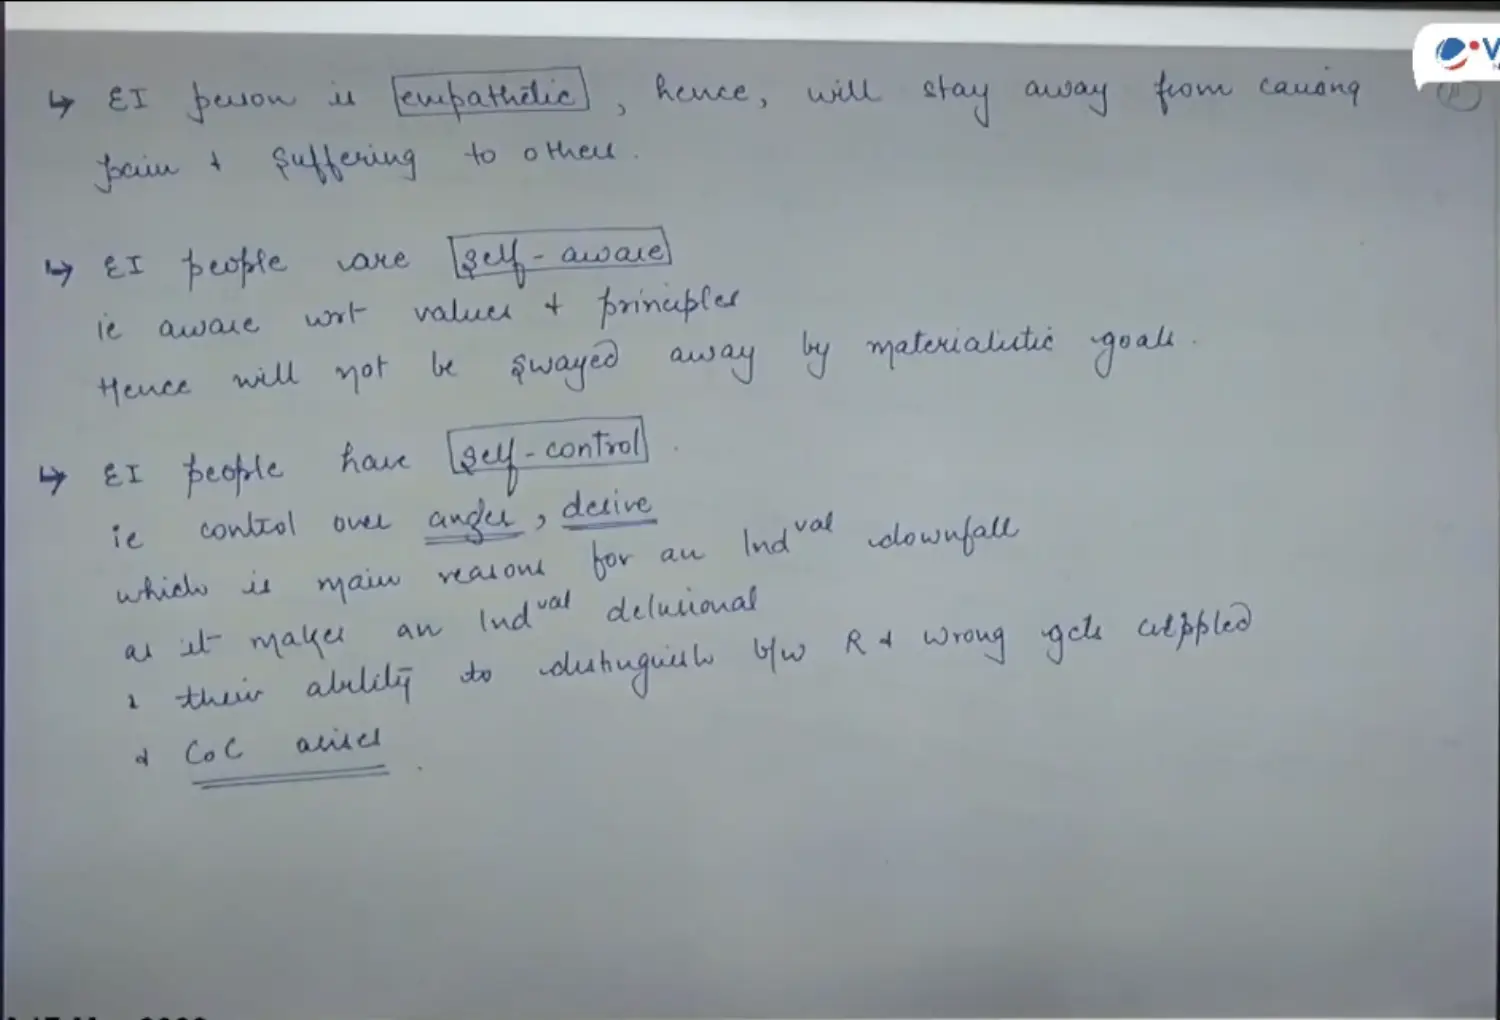 ↳ EI person is empathetic, hence, will stay away from causing
pain & suffering to others.
↳ EI people are self-aware
ie aware wrt values & principles
Hence will not be swayed away by materialistic goals.
↳ EI people have self-control.
ie control over anger, desire
which is main reasons for an Indval downfall
as it makes an Indval delusional
& their ability to distinguish b/w R & wrong gets crippled
& CoC arises.
V